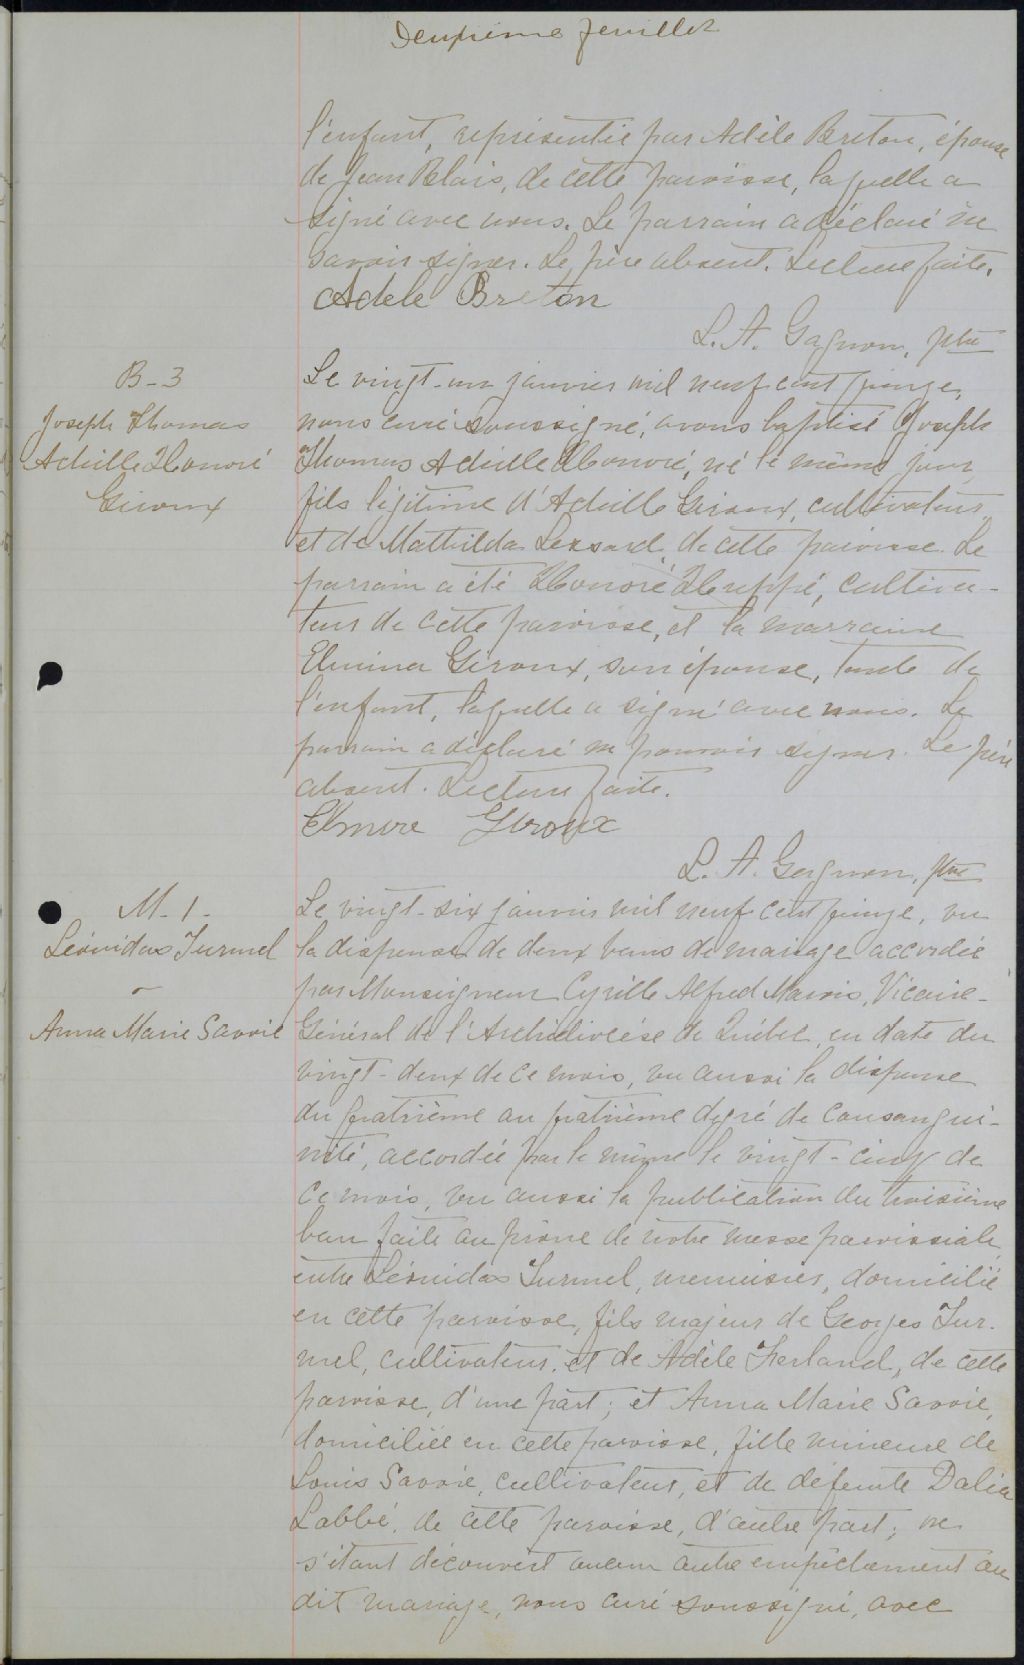 Deuxième feuillet
l'enfant, représentée par Adèle Breton, épouse
de Jean Blais, de cette paroisse, laquelle a
signé avec nous. Le parrain a déclaré ne
savoir signer. Le père absent. Lecture faite.
Adele Breton
L. A. Gagnon, ptre
B-3
Joseph Thomas
Achille Honoré
Giroux
Le vingt-un janvier mil neuf cent quinze,
nous curé soussigné, avons baptisé Joseph
Thomas Achille Honoré, né le même jour,
fils légitime d'Achille Giroux, cultivateur,
et de Mathilda Lessard, de cette paroisse. Le
parrain a été Honoré Huppé, cultiva-
teur de cette paroisse, et la marraine
Elmina Giroux, son épouse, tante de
l'enfant, laquelle a signé avec nous. Le
parrain a déclaré ne pouvoir signer. Le père
absent. Lecture faite.
Elmire Giroux
L. A. Gagnon, ptre
M-1-
Léonidas Turmel
&
Anna Marie Savoie
Le vingt-six janvier mil neuf cent quinze, vu
la dispense de deux bans de mariage accordée
par Monseigneur Cyrille Alfred Marois, Vicaire-
Général de l'Archidiocèse de Québec, en date du
vingt-deux de ce mois, vu aussi la dispense
du quatrième au quatrième degré de consangui-
nité, accordée par le même le vingt-cinq de
ce mois, vu aussi la publication du troisième
ban faite au prône de notre messe paroissiale
entre Léonidas Turmel, menuisier, domicilié
en cette paroisse, fils majeur de Georges Tur-
mel, cultivateur, et de Adèle Ferland, de cette
paroisse, d'une part; et Anna Marie Savoie,
domiciliée en cette paroisse, fille mineure de
Louis Savoie, cultivateur, et de défunte Dalia
Labbé, de cette paroisse, d'autre part; ne
s'étant découvert aucun autre empêchement au
dit mariage, nous curé soussigné, avec